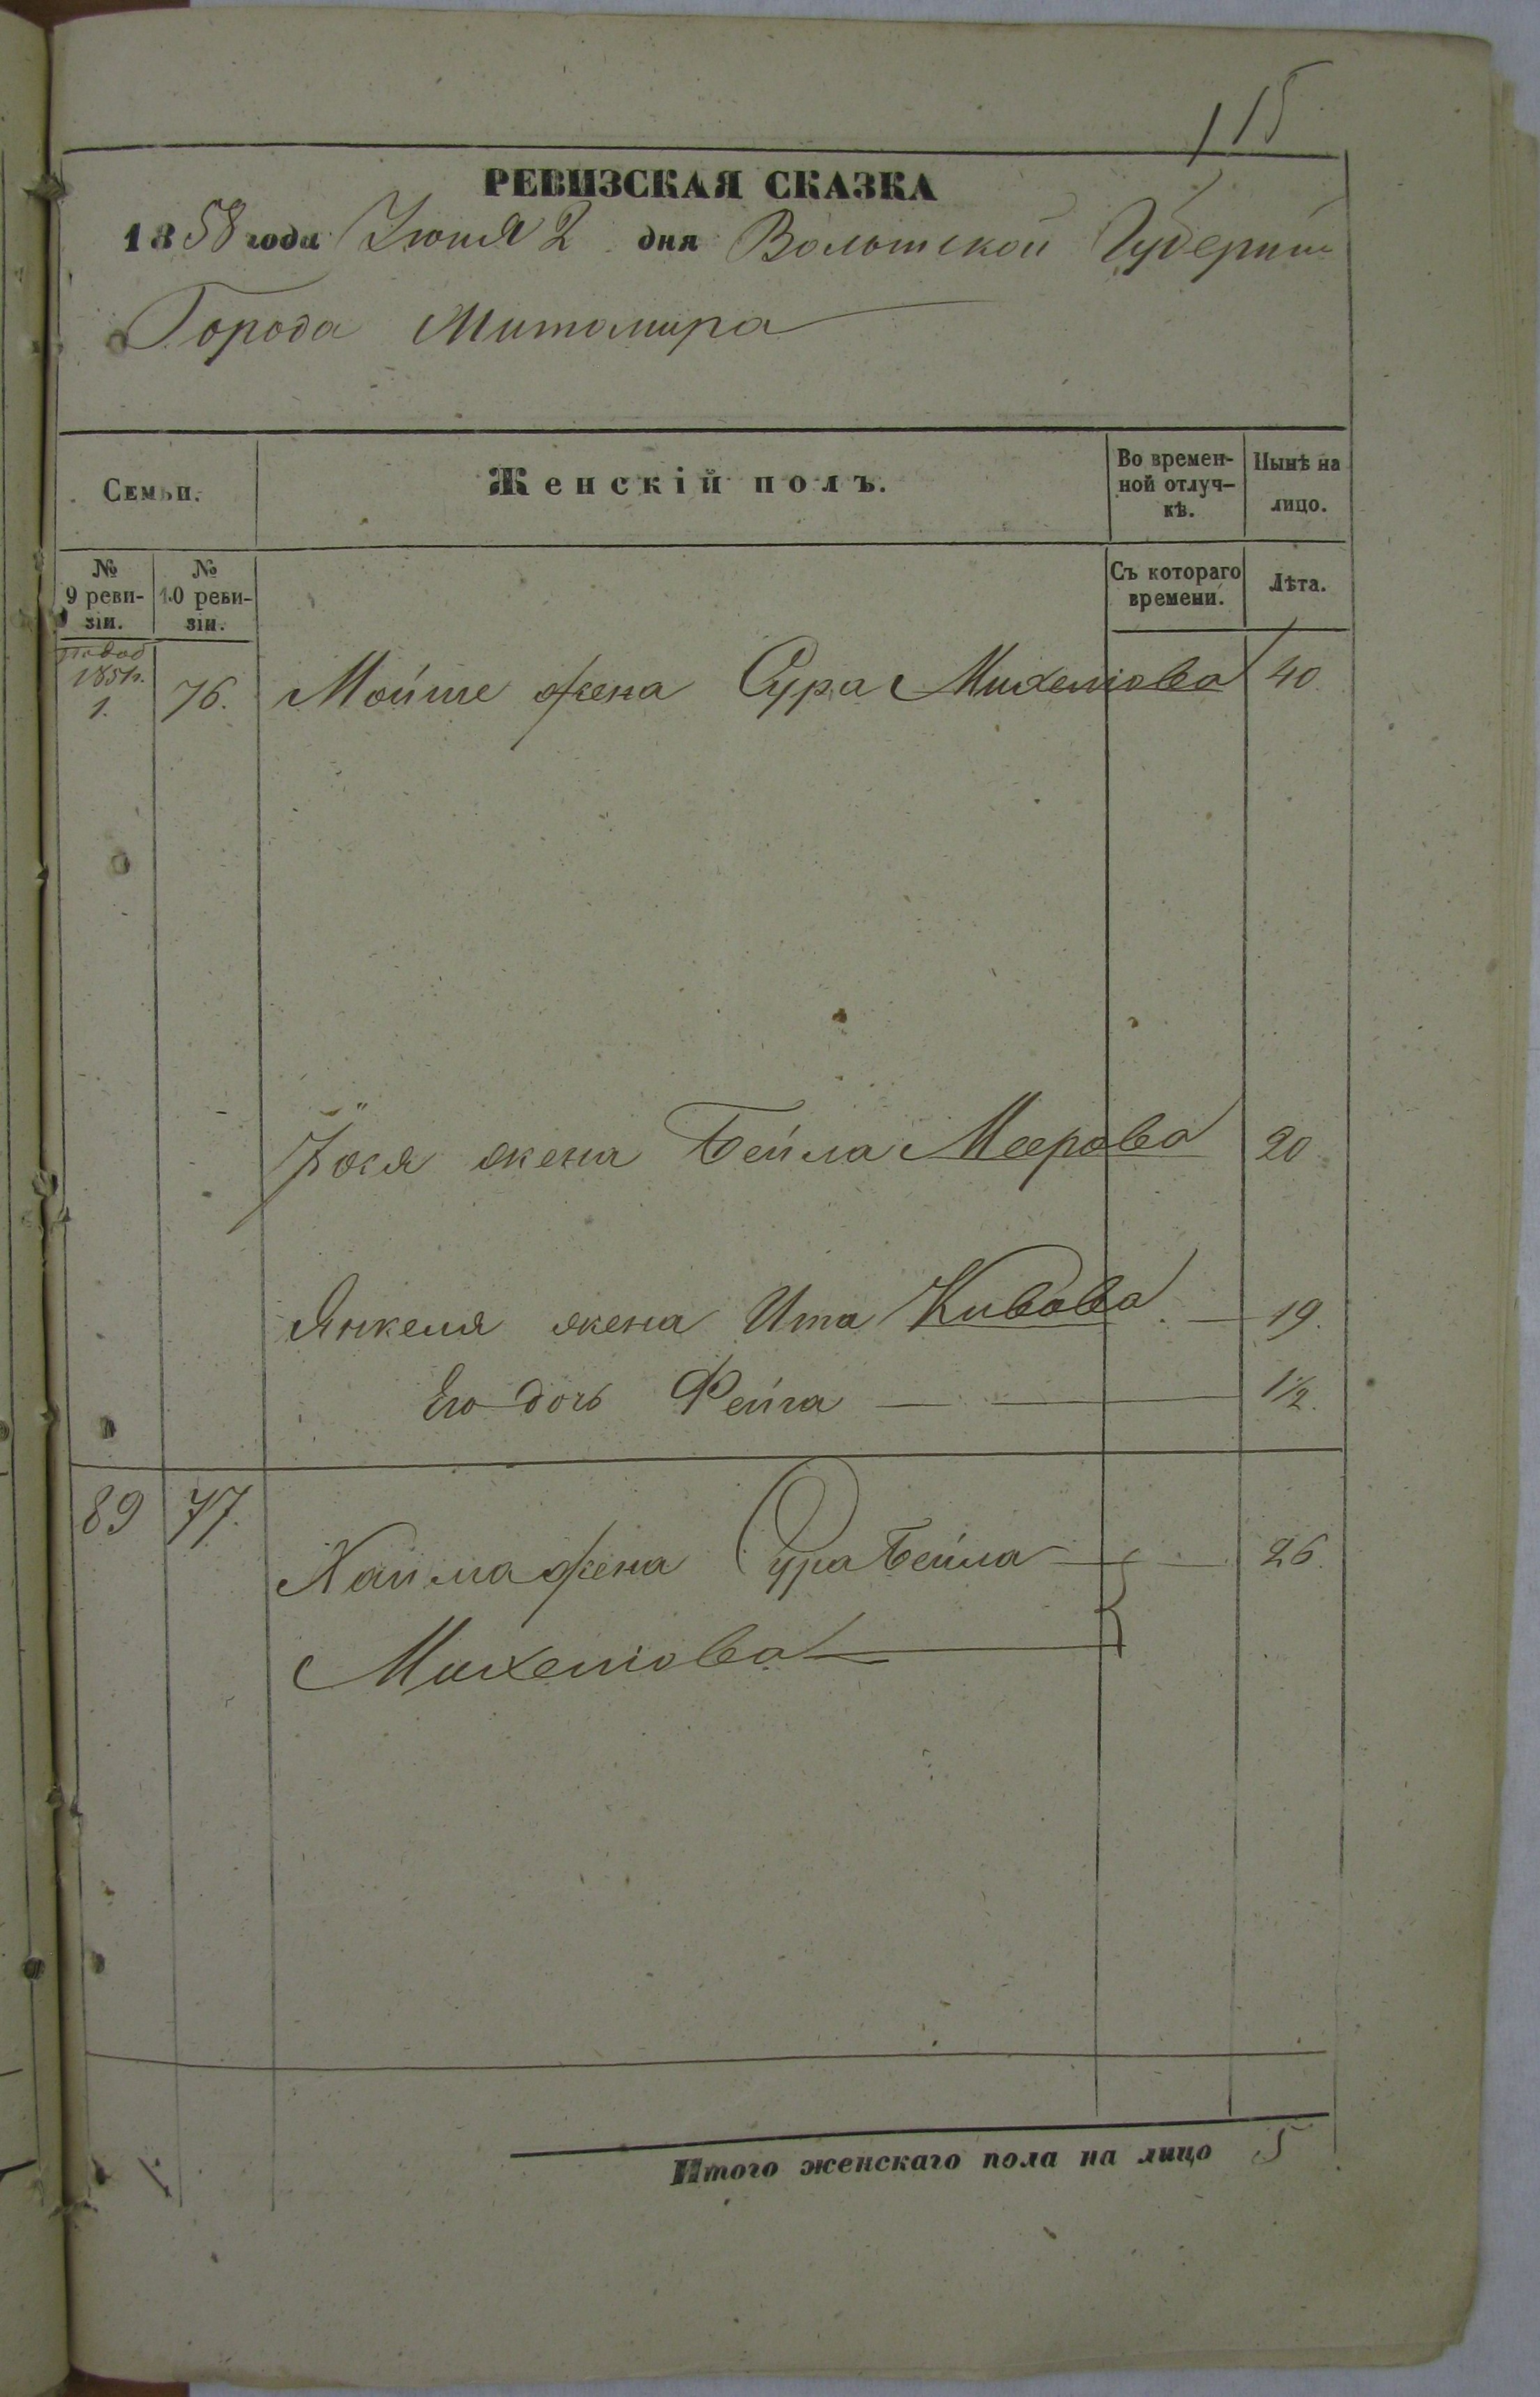 115
РЕВИЗСКАЯ СКАЗКА
1858 года Июня 2 дня Волынской Губернии
Города Житомира
Семьи.
Женскій полъ.
Во времен-
ной отлуч-
кѣ.
Нынѣ на
лицо.
№
9 реви-
зіи.
№
10 реви-
зіи.
Съ котораго
времени.
Лѣта.
1851г.
1. 76. Мойше жена Сура Михелiова 40
Іося жена Бейла Меерова 20
Янкеля жена Ита Кивова. 19.
Его дочь Фейга 1½.
89 77.
Хаима жена Сура Бейла 26.
Михелiова
Итого женскаго пола на лицо 5